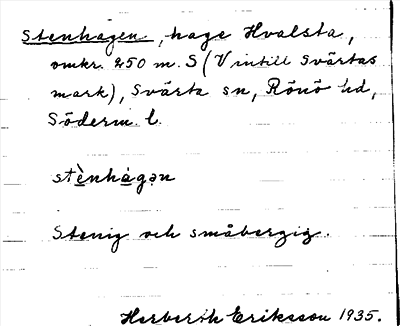 Stenhagen, hage Hvalsta,
omkr. 250 m. S (V intill Svärtas
mark), Svärta sn, Rönö hd,
Söderm. l.
stènhàgən
Stenig och småbergig.
Herberth Eriksson 1935.